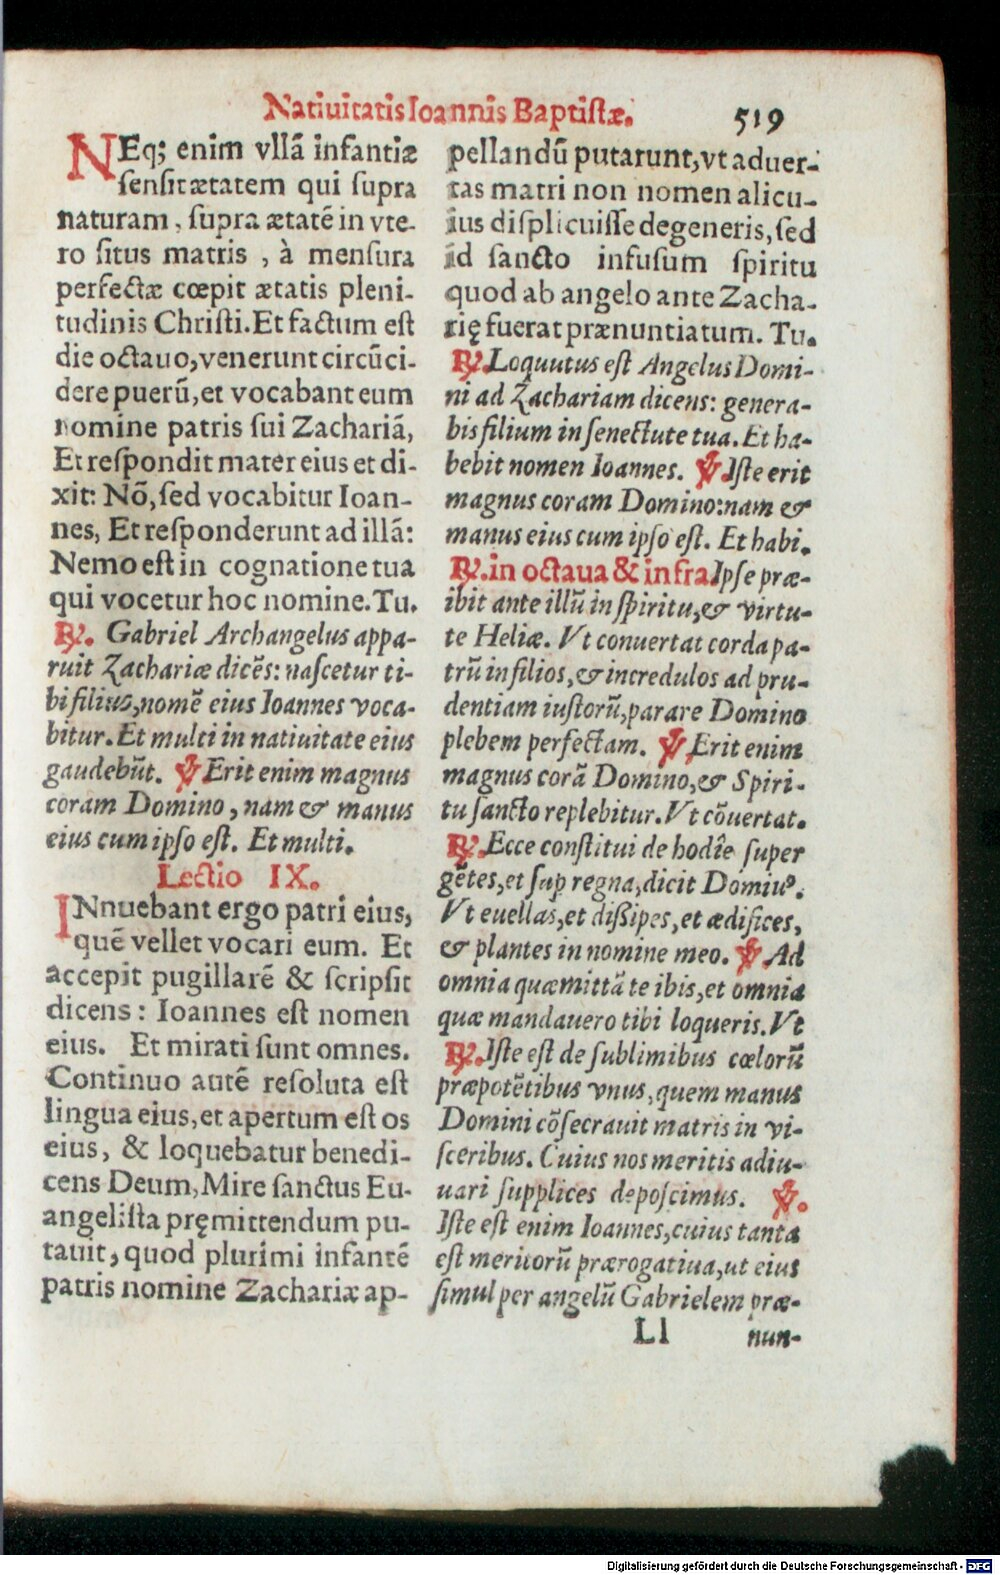 Natiuitatis Ioannis Baptistæ. 519
NEq; enim vllã infantiæ
sensit ætatem qui supra
naturam, supra ætatẽ in vte-
ro situs matris, à mensura
perfectæ cœpit ætatis pleni-
tudinis Christi. Et factum est
die octauo, venerunt circũci-
dere puerũ, et vocabant eum
nomine patris sui Zachariã,
Et respondit mater eius et di-
xit: Nõ, sed vocabitur Ioan-
nes, Et responderunt ad illã:
Nemo est in cognatione tua
qui vocetur hoc nomine. Tu.
℟. Gabriel Archangelus appa-
ruit Zachariæ dicẽs: nascetur ti-
bi filius, nomẽ eius Ioannes voca-
bitur. Et multi in natiuitate eius
gaudebũt. ℣ Erit enim magnus
coram Domino, nam & manus
eius cum ipso est. Et multi.
Lectio IX.
INnuebant ergo patri eius,
quẽ vellet vocari eum. Et
accepit pugillarẽ & scripsit
dicens: Ioannes est nomen
eius. Et mirati sunt omnes.
Continuo autẽ resoluta est
lingua eius, et apertum est os
eius, & loquebatur benedi-
cens Deum, Mire sanctus Eu-
angelista pręmittendum pu-
tauit, quod plurimi infantẽ
patris nomine Zachariæ ap-
pellandũ putarunt, vt aduer-
tas matri non nomen alicu-
ius displicuisse degeneris, sed
id sancto infusum spiritu
quod ab angelo ante Zacha-
rię fuerat prænuntiatum. Tu.
℟. Loquutus est Angelus Domi-
ni ad Zachariam dicens: genera-
bis filium in senectute tua. Et ha-
bebit nomen Ioannes. ℣ Iste erit
magnus coram Domino: nam &
manus eius cum ipso est. Et habi.
℟. in octaua & infra Ipse præ-
ibit ante illũ in spiritu, & virtu-
te Heliæ. Vt conuertat corda pa-
trũ in filios, & incredulos ad pru-
dentiam iustorũ, parare Domino
plebem perfectam. ℣ Erit enim
magnus corã Domino, & Spiri-
tu sancto replebitur. Vt cõuertat.
℟. Ecce constitui de hodie super
gẽtes, et suꝑ regna, dicit Domiuꝰ.
Vt euellas, et dissipes, et ædifices,
& plantes in nomine meo. ℣ Ad
omnia quæ mittã te ibis, et omnia
quæ mandauero tibi loqueris. Vt
℟. Iste est de sublimibus cœlorũ
præpotẽtibus vnus, quem manus
Domini cõsecrauit matris in vi-
sceribus. Cuius nos meritis adiu-
uari supplices deposcimus. ℣.
Iste est enim Ioannes, cuius tanta
est meritorũ prærogatiua, ut eius
simul per angelũ Gabrielem præ-
Ll nun-
Digitalisierung gefördert durch die Deutsche Forschungsgemeinschaft - DFG